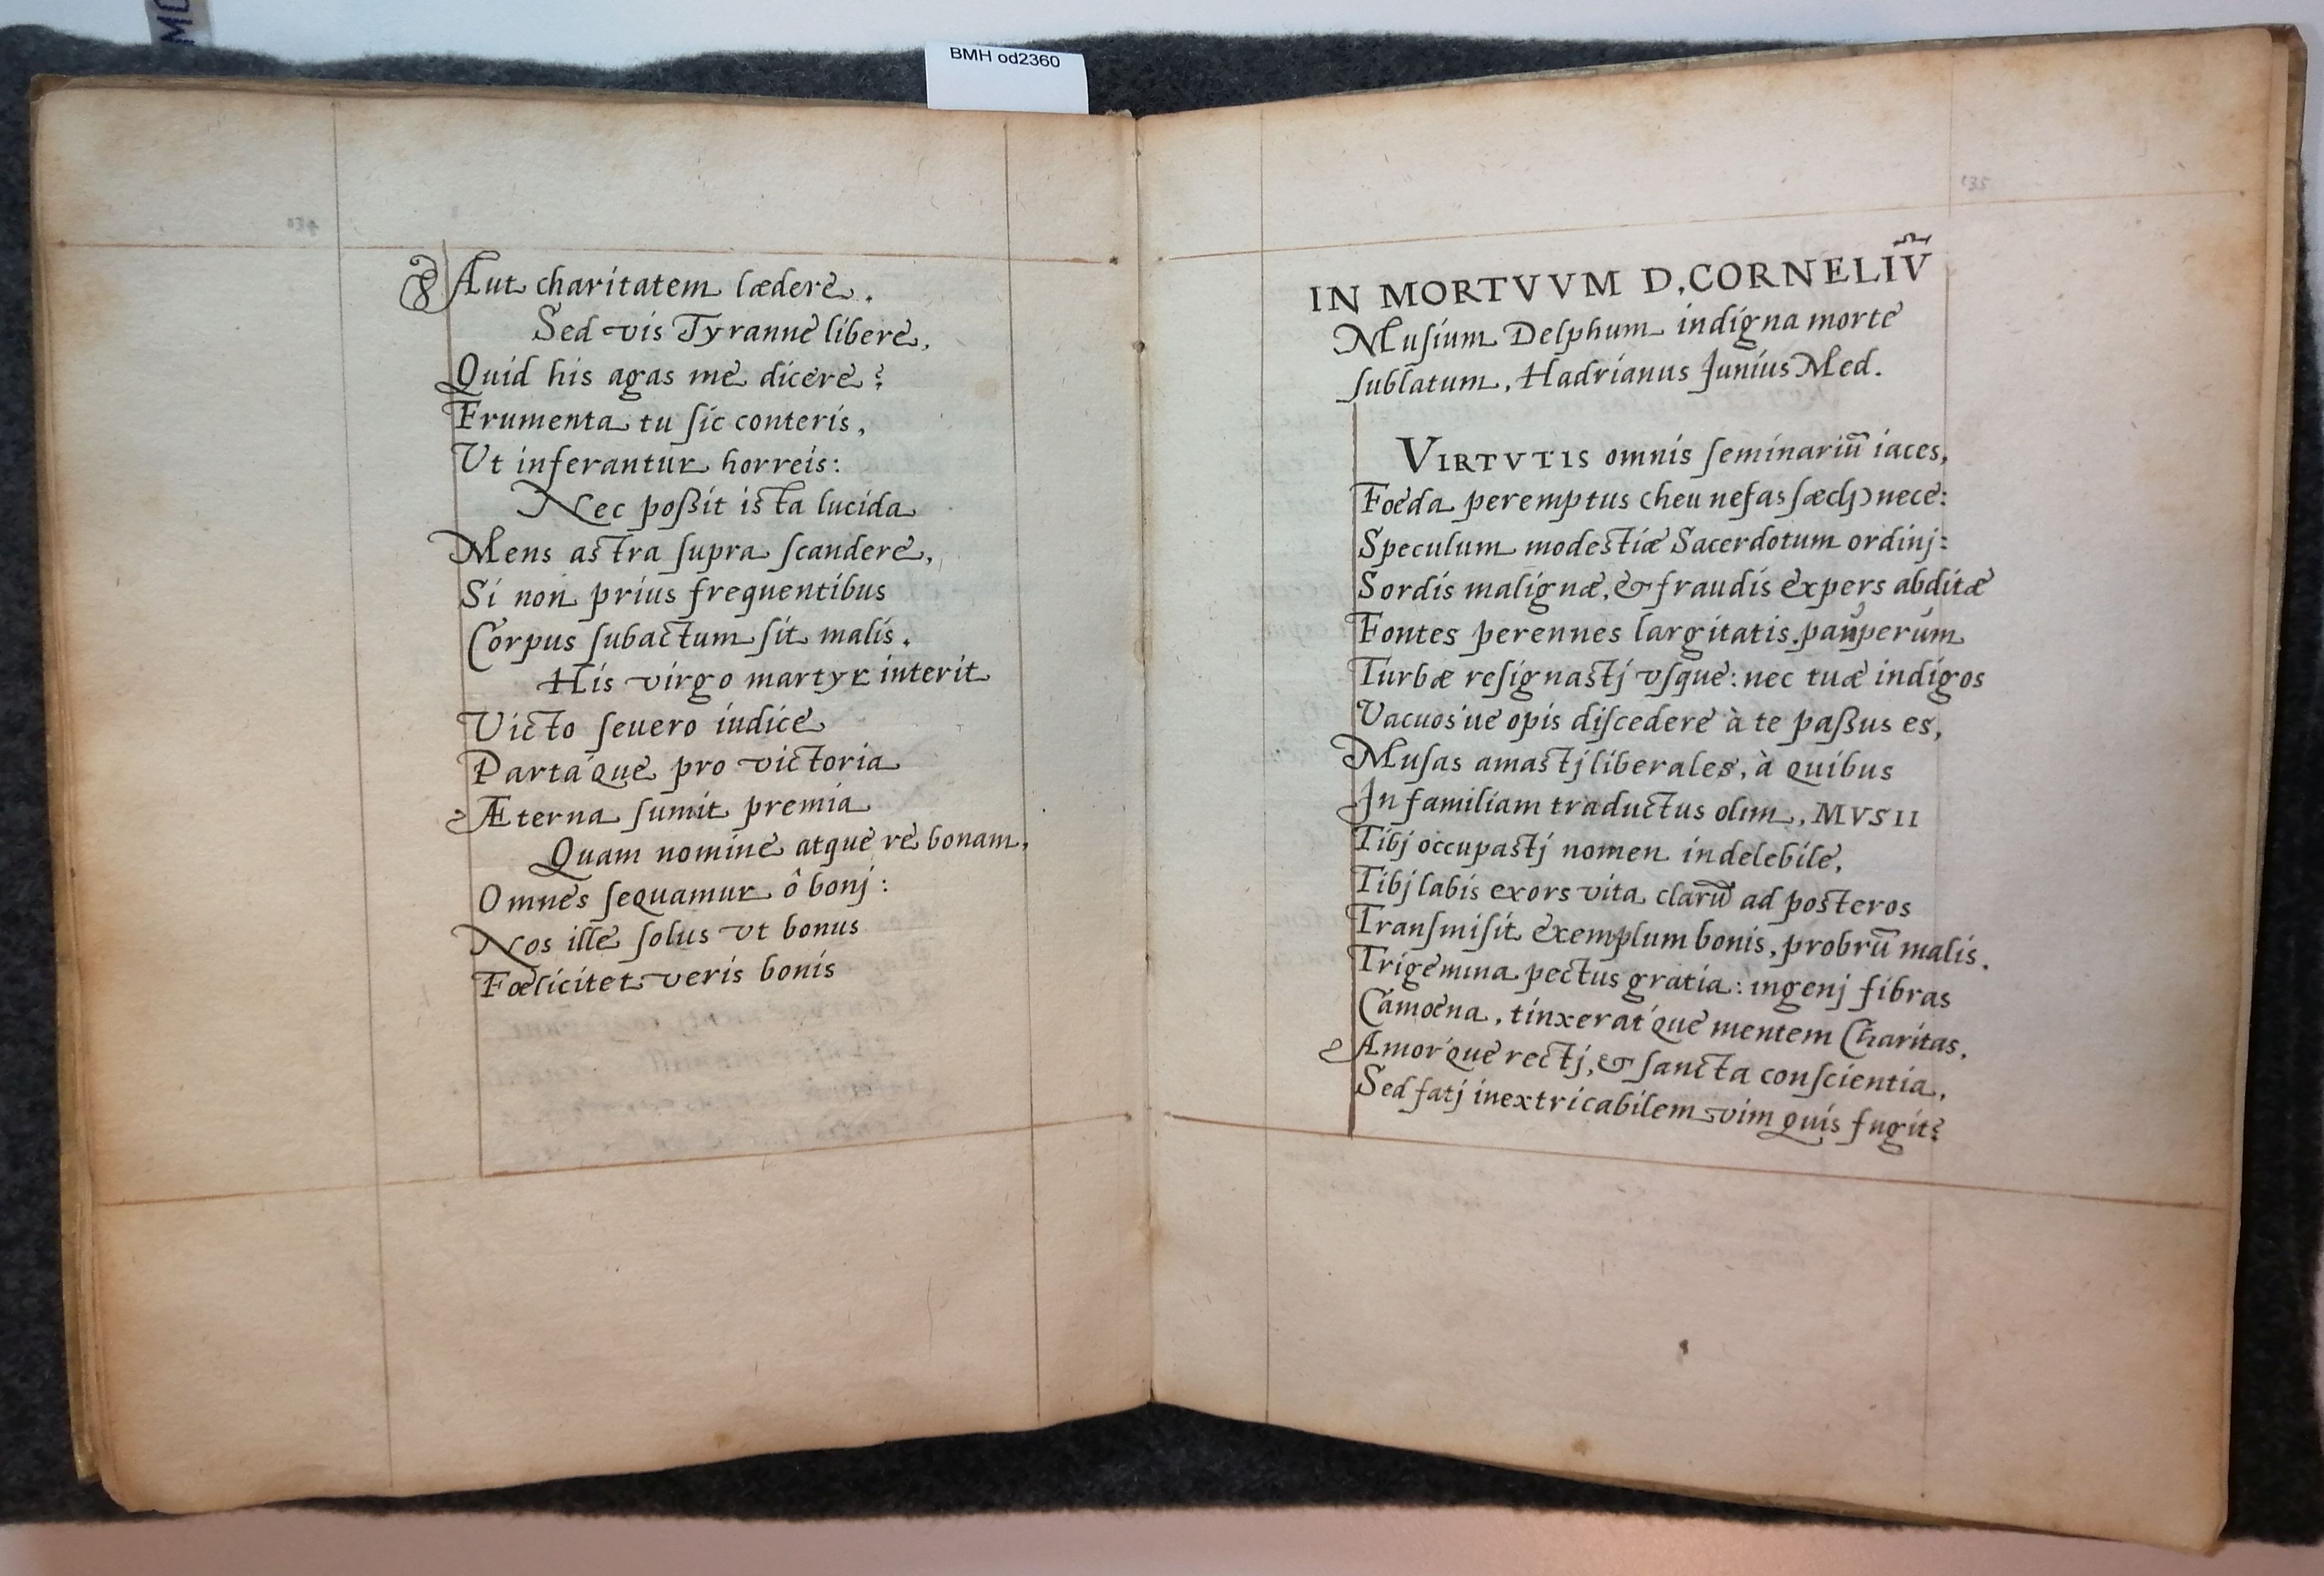 BMH od2360
134
Aut charitatem lædere.
Sed vis Tyranne libere,
Quid his agas me dicere?
Frumenta tu sic conteris,
Vt inferantur horreis:
Nec poßit ista lucida
Mens astra supra scandere,
Si non prius frequentibus
Corpus subactum sit malis.
His virgo martyr interit
Victo seuero iudice
Partáque pro victoria
Æterna sumit premia
Quam nomine atque re bonam,
Omnes sequamur ô bonj:
Nos ille solus vt bonus
Fœlicitet veris bonis
135
IN MORTVVM D. CORNELIV̄
Musium Delphum indigna morte
sublatum, Hadrianus Junius Med.
VIRTVTIS omnis seminariū iaces,
Foeda peremptus eheu nefas nece:
Speculum modestiæ Sacerdotum ordinj:
Sordis malignæ, & fraudis expers abditæ
Fontes perennes largitatis pauperum
Turbæ resignastj vsque: nec tuæ indigos
Vacuos've opis discedere à te paßus es,
Musas amastj liberales, à quibus
In familiam traductus olim, MVSII
Tibj occupastj nomen indelebile,
Tibj labis exors vita clarū ad posteros
Transmisit exemplum bonis, probrū malis.
Trigemina pectus gratia: ingenj fibras
Camœna, tinxerat'que mentem Charitas,
Amor'que rectj, & sancta conscientia,
Sed fatj inextricabilem vim quis fugit?